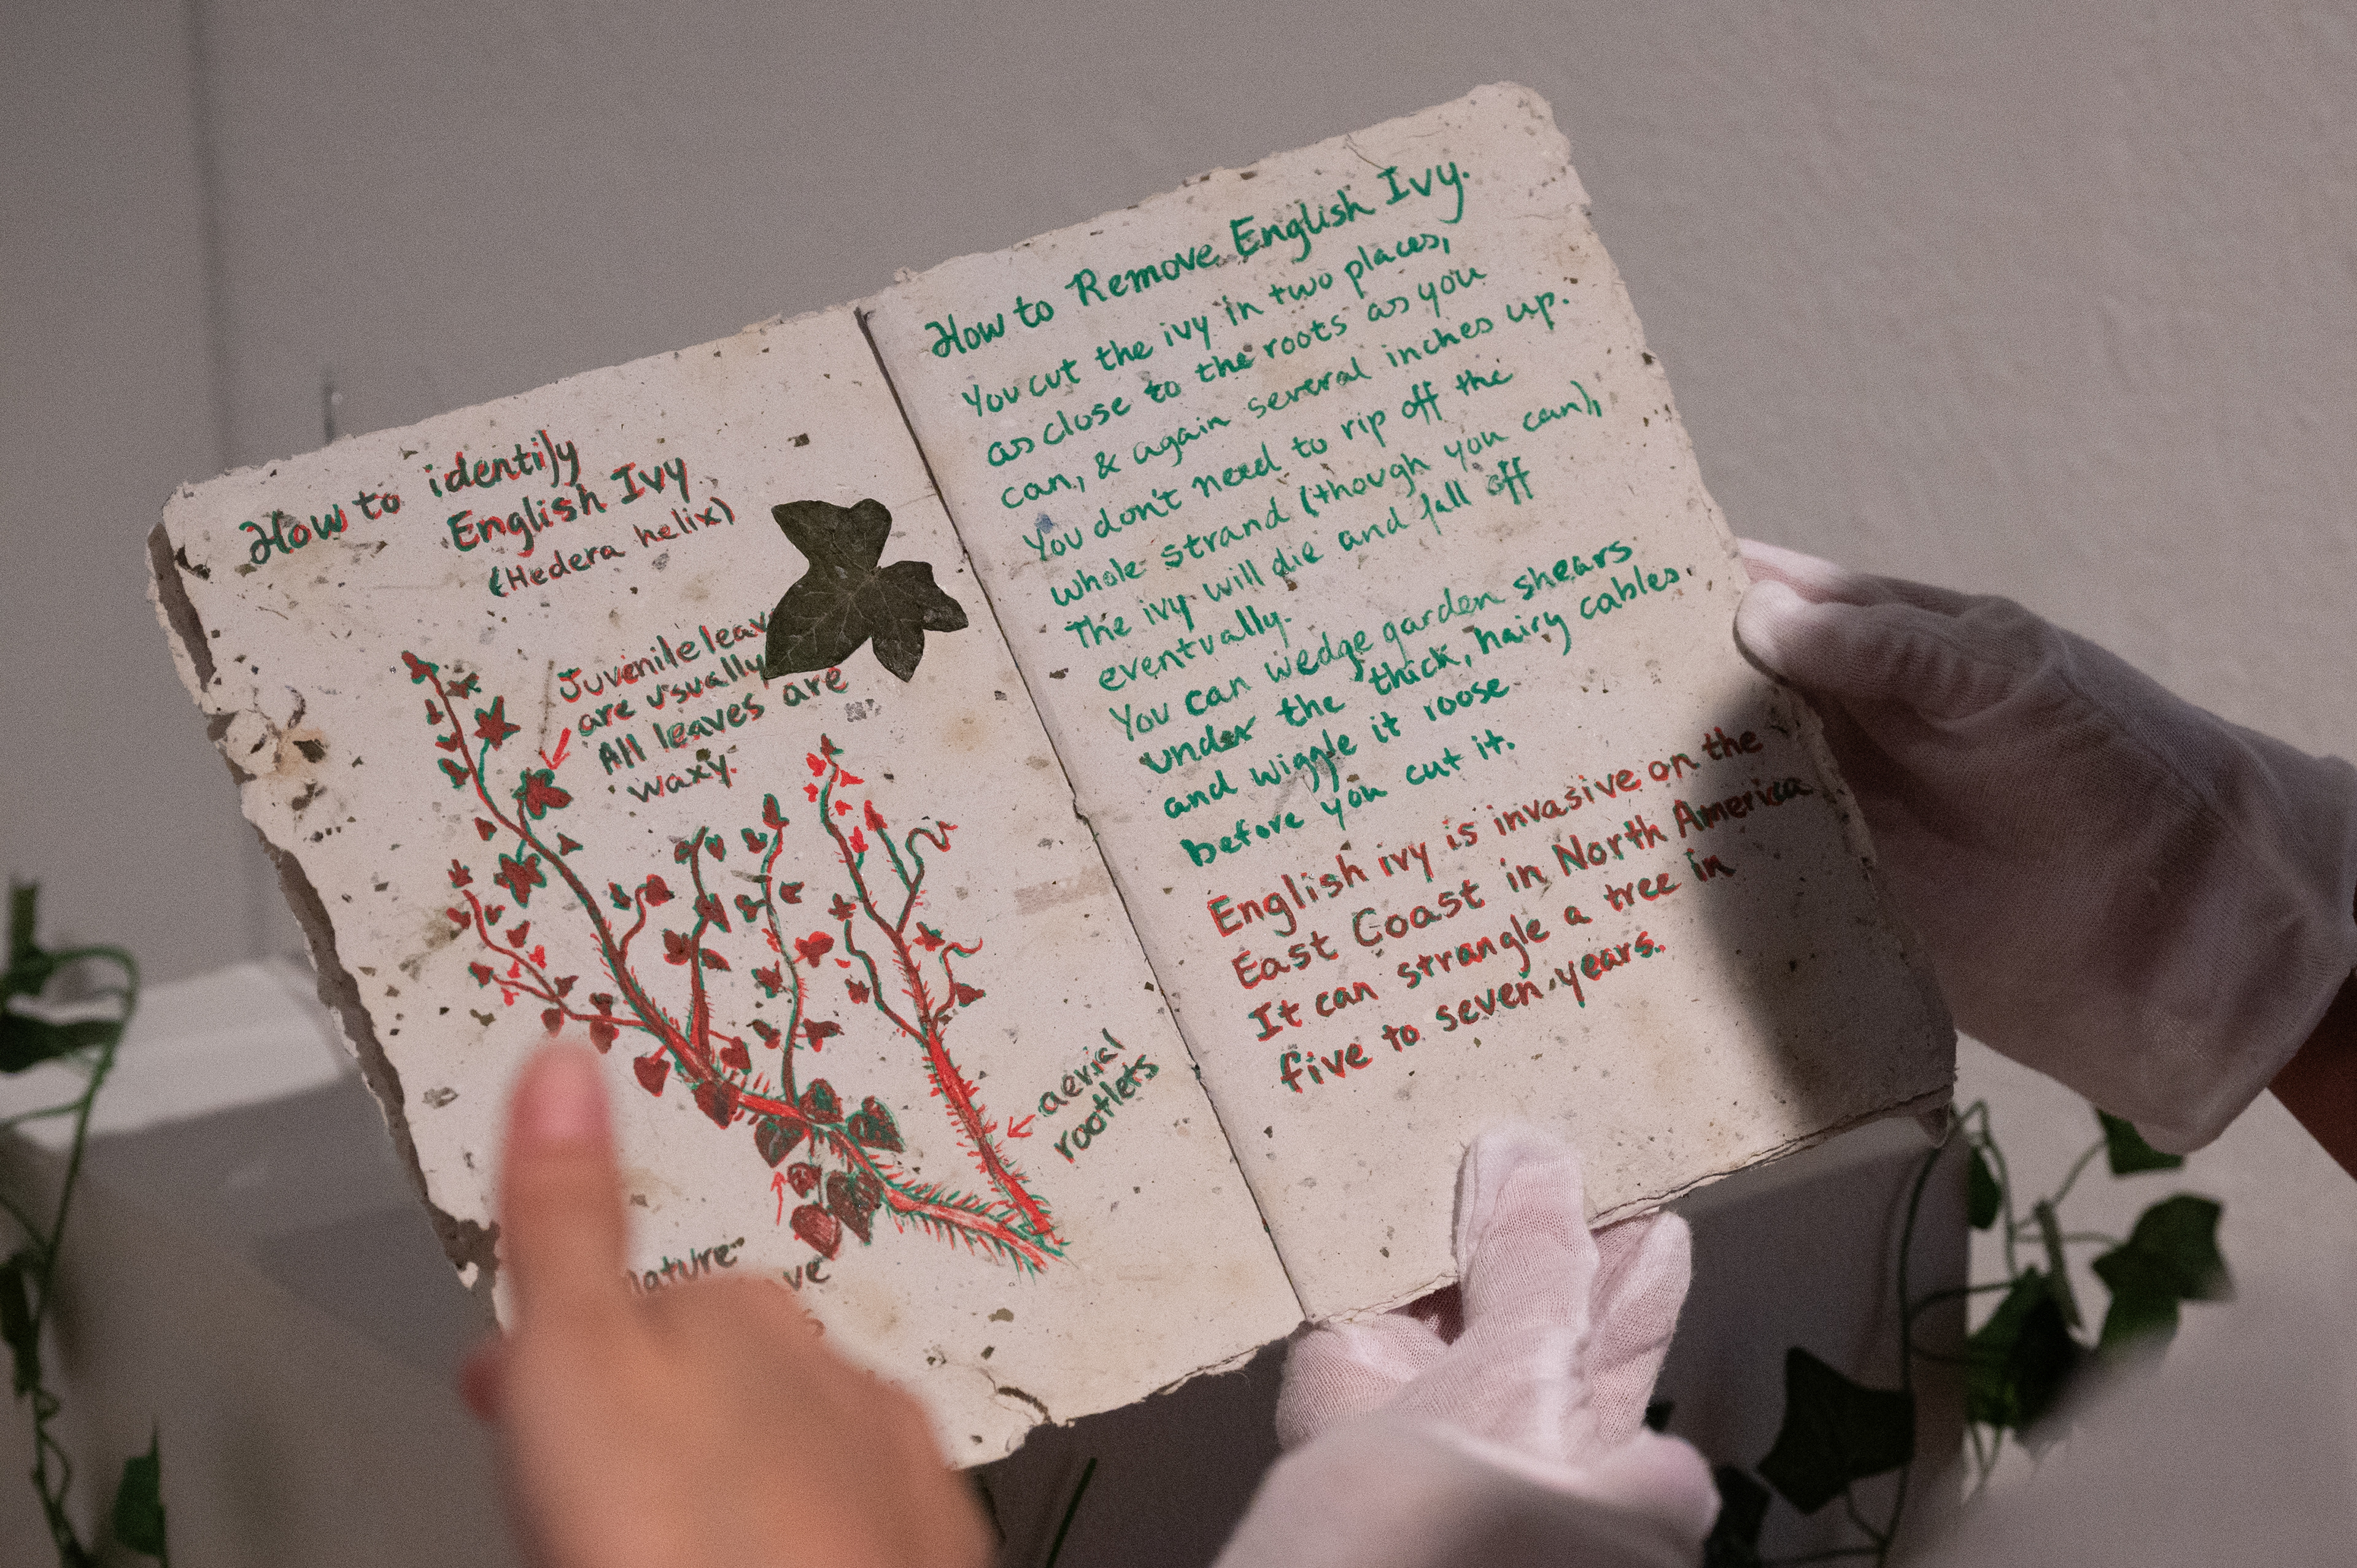 How to identify
English Ivy
(Hedera helix)
Juvenile
are usually
All leaves are
waxy.
aerial
rootlets
How to Remove English Ivy.
You cut the ivy in two places,
as close to the roots as you
can, & again several inches up.
You don't need to rip off the
whole strand (though you can),
The ivy will die and fall off
eventually.
You can wedge garden shears
under the thick, hairy cables.
and wiggle it loose
before you cut it.
English ivy is invasive on the
East Coast in North America
It can strangle a tree in
five to seven years.